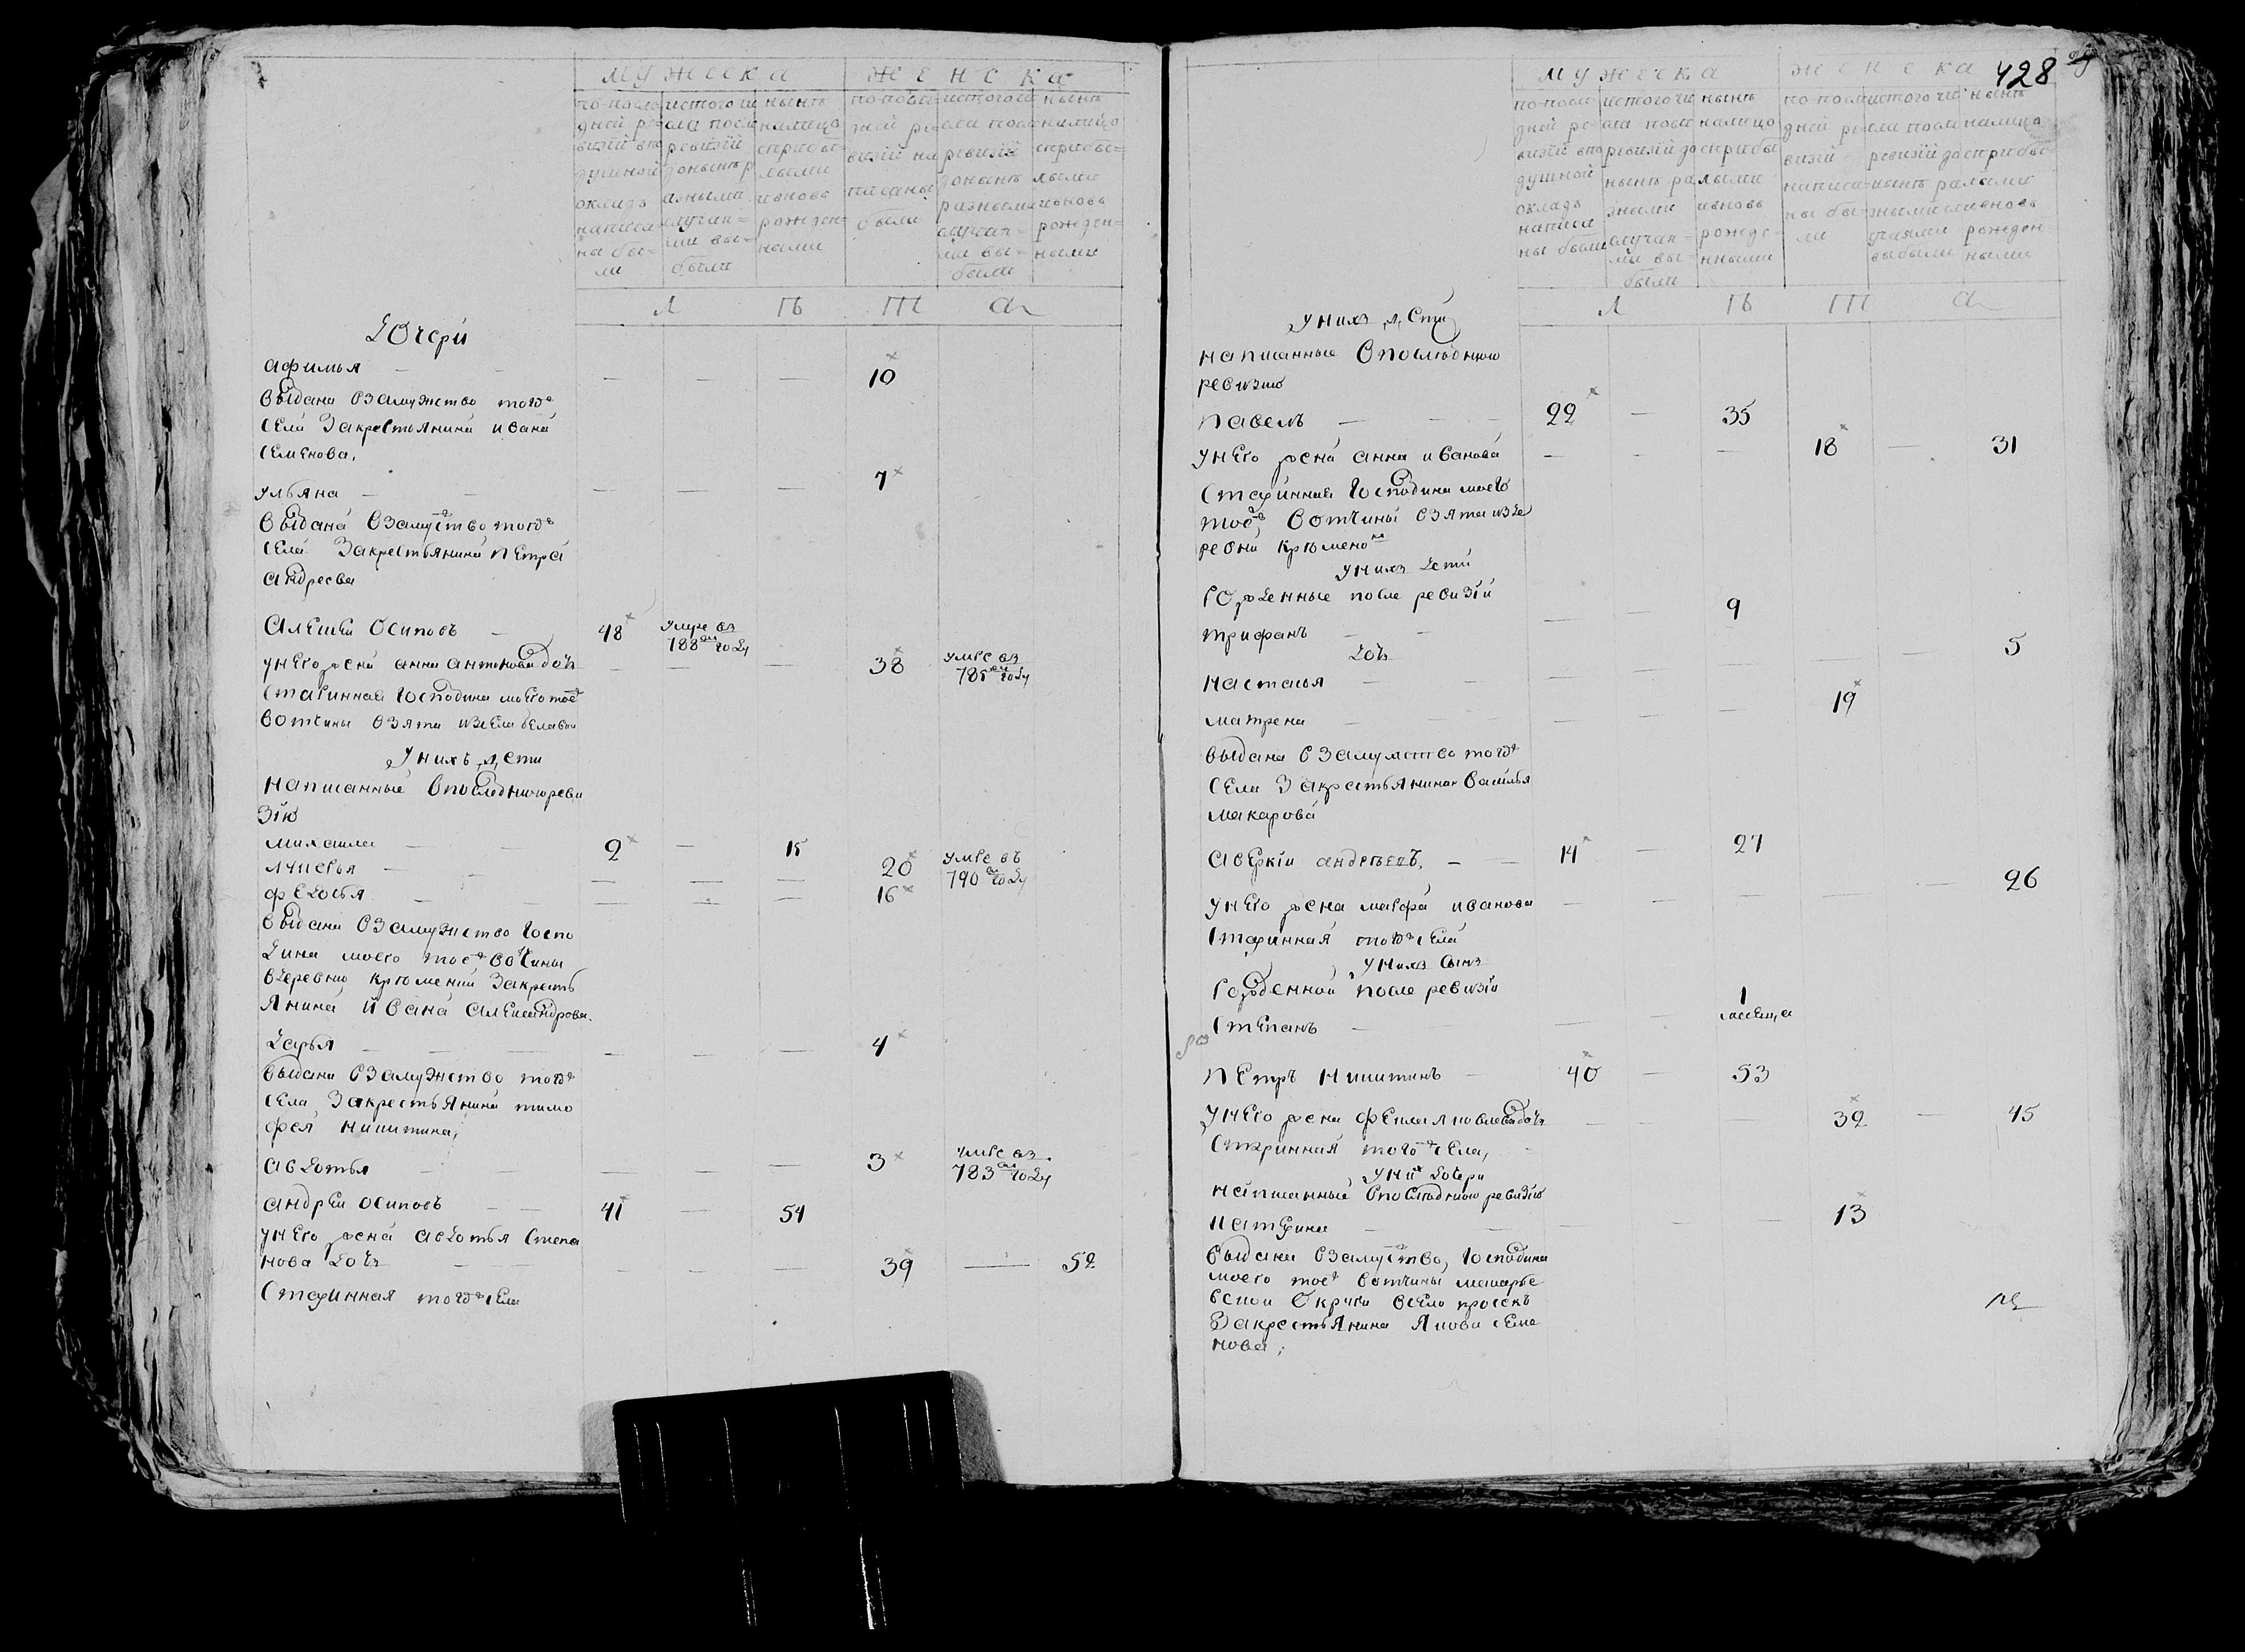 мужеска женска
по послѣ
дней ре=
визiй впо
душной
окладъ
написа
ны бы=
ли
истого чи
сла посли
ревизiй
донынѣ р
азными
случая=
ми вы=
были
нынѣ
налицо
сприбы=
лыми
ивновь
рожден=
ными
по послѣ=
дней ре=
визiй на
писаны
были
истого чи
сла посли
ревизiй
донынѣ
разными
случая=
ми вы=
были
нынѣ
налицо
сприбы=
лыми
ивновь
рожден=
ными
Л Ѣ Т А
Дочери
афимья 10
выдана взамужство того
села закрестьянина ивана
семенова,
ульяна 7
выдана взамуство того
села закрестьянина петра
андреева
Алексей Осиповъ 48 умре въ 788м году
унего жена анна антонова дочь 38 умре въ 785м году
старинная господина моего тоеж
вотчины взята изсела
унихъ дети
написанные впоследнюю реви
зiю
михаила 2 15
лукерья 20 умре въ 790м году
федосья 16
выдана взамужство госпо
дина моего тоеж вотчины
вдеревню кременки закресть
янина ивана александрова.
дарья 4
выдана взамужство того
села закрестьянина тимо
фея никитина,
авдотья 3 умре въ 783м году
андреи осиповъ 41 54
унего жена авдотья степа
нова дочь 39 52
старинная тогож села
428
мужеска женска
по послѣ
дней ре
визiй впо
душной
окладъ
написа
ны были
истого чи
сла посли
ревизiй до
нынѣ ра
зными
случая=
ми вы=
были
нынѣ
налицо
сприбы
лыми
ивновь
рожде=
нными
по послѣ
дней ре=
визiй
написа=
ны бы=
ли
истого чи
сла посли
ревизiй до
нынѣ ра
зными сл
учаями
выбыли
нынѣ
налицо
сприбы
лыми
ивновь
рожден=
ными
Л Ѣ Т А
унихъ дети
написанные впоследнюю
ревизию
павелъ 22 35
унего жена анна иванова 18 31
старинная господина моего
тоеж вотчины взята изде
ревни кременокъ
унихъ дети
рожденные после ревизiи
трифанъ 9
дочь 5
настасья
матрена 19
выдана взамужство того
села закрестьянина василья
макарова
аверкiи андреевъ, 14 27
унего жена марфа иванова 26
старинная тогож села
унихъ сынъ
рожденной после ревизiи
степанъ 1 месеца
петръ никитинъ 40 53
унего жена фекла яковлева дочь 32 45
старинная тогож села,
уних дочери
написанные впоследнюю ревизiю
катерина 13
выдана взамуство, господина
моего тоеж вотчины макарье
вскои округи всело просекъ
закрестьянина якова семе
нова;